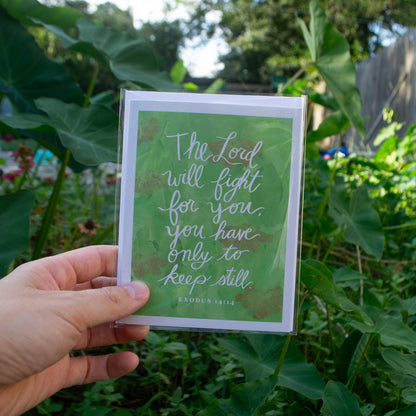 The Lord
will fight
for you,
you have
only to
keep still.
EXODUS 14:14